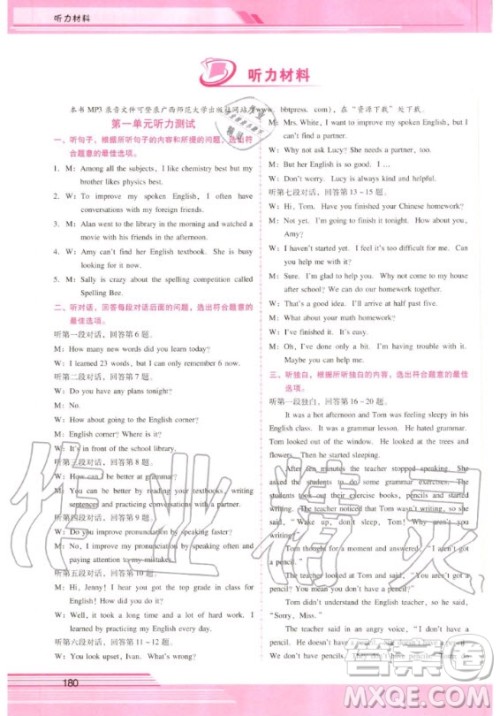 听力材料
听力材料
本书 MP3 录音文件可登录广西师范大学出版社网站 bbtpress. com),在“资源下载”处下载。
第一单元听力测试
一、听句子,根据所听句子的内容和所提的问题,选出符
合题意的最佳选项。
1. M: Among all the subjects, I like chemistry best but my
brother likes physics best.
2. W: To improve my spoken English, I often have
conversations with my foreign friends.
3. M: Alan went to the library in the morning and watched a
movie with his friends in the afternoon.
4. W: Amy can't find her English book. She is busy
looking for it now.
5. M: Sally is crazy about the spelling competition called
Spelling Bee.
二、听对话,回答每段对话后面的问题,选出符合题意的
最佳选项。
听第一段对话,回答第 6 题。
M: How many new words did you learn today?
W: I learned 23 words, but I can only remember 6 now.
听第二段对话,回答第 7 题。
W: Do you have any plans tonight?
M: No.
W: How about going to the English corner?
M: English corner? Where is it?
W: It's in front of the school library.
听第三段对话,回答第 8 题。
W: How can I be better at grammar?
M: You can be better by reading textbooks, writing
sentences and practicing conversations.
听第四段对话,回答第 9 题。
W: Do you improve pronunciation by speaking faster?
M: No, I improve my pronunciation by speaking often and
paying attention to my mistakes.
听第五段对话,回答第 10 题。
M: Hi, Jenny! I hear you got the top grade in class for
English. How did you do that?
W: Well, it took a long time and a lot of hard work. I
started to study two months ago.
听第六段对话,回答第 11~12 题。
W: You look upset, Ivan. What's wrong?
M: Mrs. White, I want to improve my spoken English, but I
can't find a partner.
W: Why not ask Lucy? She needs a partner, too.
M: But she speaks English so fast. I'm afraid ...
W: Don't worry. Lucy is always kind and helpful.
听第七段对话,回答第 13~15 题。
W: Hi, Tom. Have you finished your Chinese homework?
M: Not yet. I'm going to finish it tonight. How about you,
Amy?
W: I haven't started yet. I feel it's too difficult for me.
Can you help me?
M: Sure. I'm glad to help you. Why not come to my house
after school? We can do our homework together.
W: That's great. I'll arrive at half past five.
M: What about your math homework?
W: I've finished it. I'm good at it. What about you?
M: I've finished only a little bit. I'm having trouble with it.
W: Maybe I can help you.
M: Terrific. Thanks a lot.
三、听独白,根据所听独白的内容,选出符合题意的最佳
选项。
听第一段独白,回答第 16~20 题。
It was a hot afternoon and Tom was feeling sleepy in his
English class. It was a grammar lesson. He hated grammar.
Tom looked out of the windows. He looked at the trees and
flowers. Then he started to fall asleep.
after ten minutes the teacher stopped speaking. She
asked the students to do some grammar exercises. The
students took out their exercise books, pencils and started
writing. The teacher noticed that Tom wasn't writing, so she
said, "Wake up, don't sleep, Tom! Why aren't you
writing?"
Tom thought for a moment and answered, "I ain't got
a pencil."
The teacher looked at Tom and said, "You ain't got a
pencil? You mean, I don't have a pencil."
Tom didn't understand the teacher, so he said,
"Sorry, Miss."
The teacher said in an angry voice, "I don't have a
pencil. He doesn't have a pencil. She doesn't have a pencil.
We don't have pencils.
180
作业精灵
答案圈
MXQE.COM